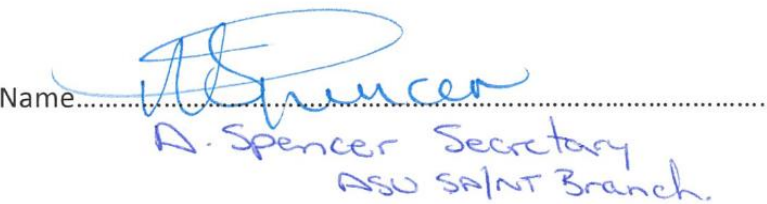 Name.......ASpencer.......
A. Spencer Secretary
ASU SA/NT Branch.